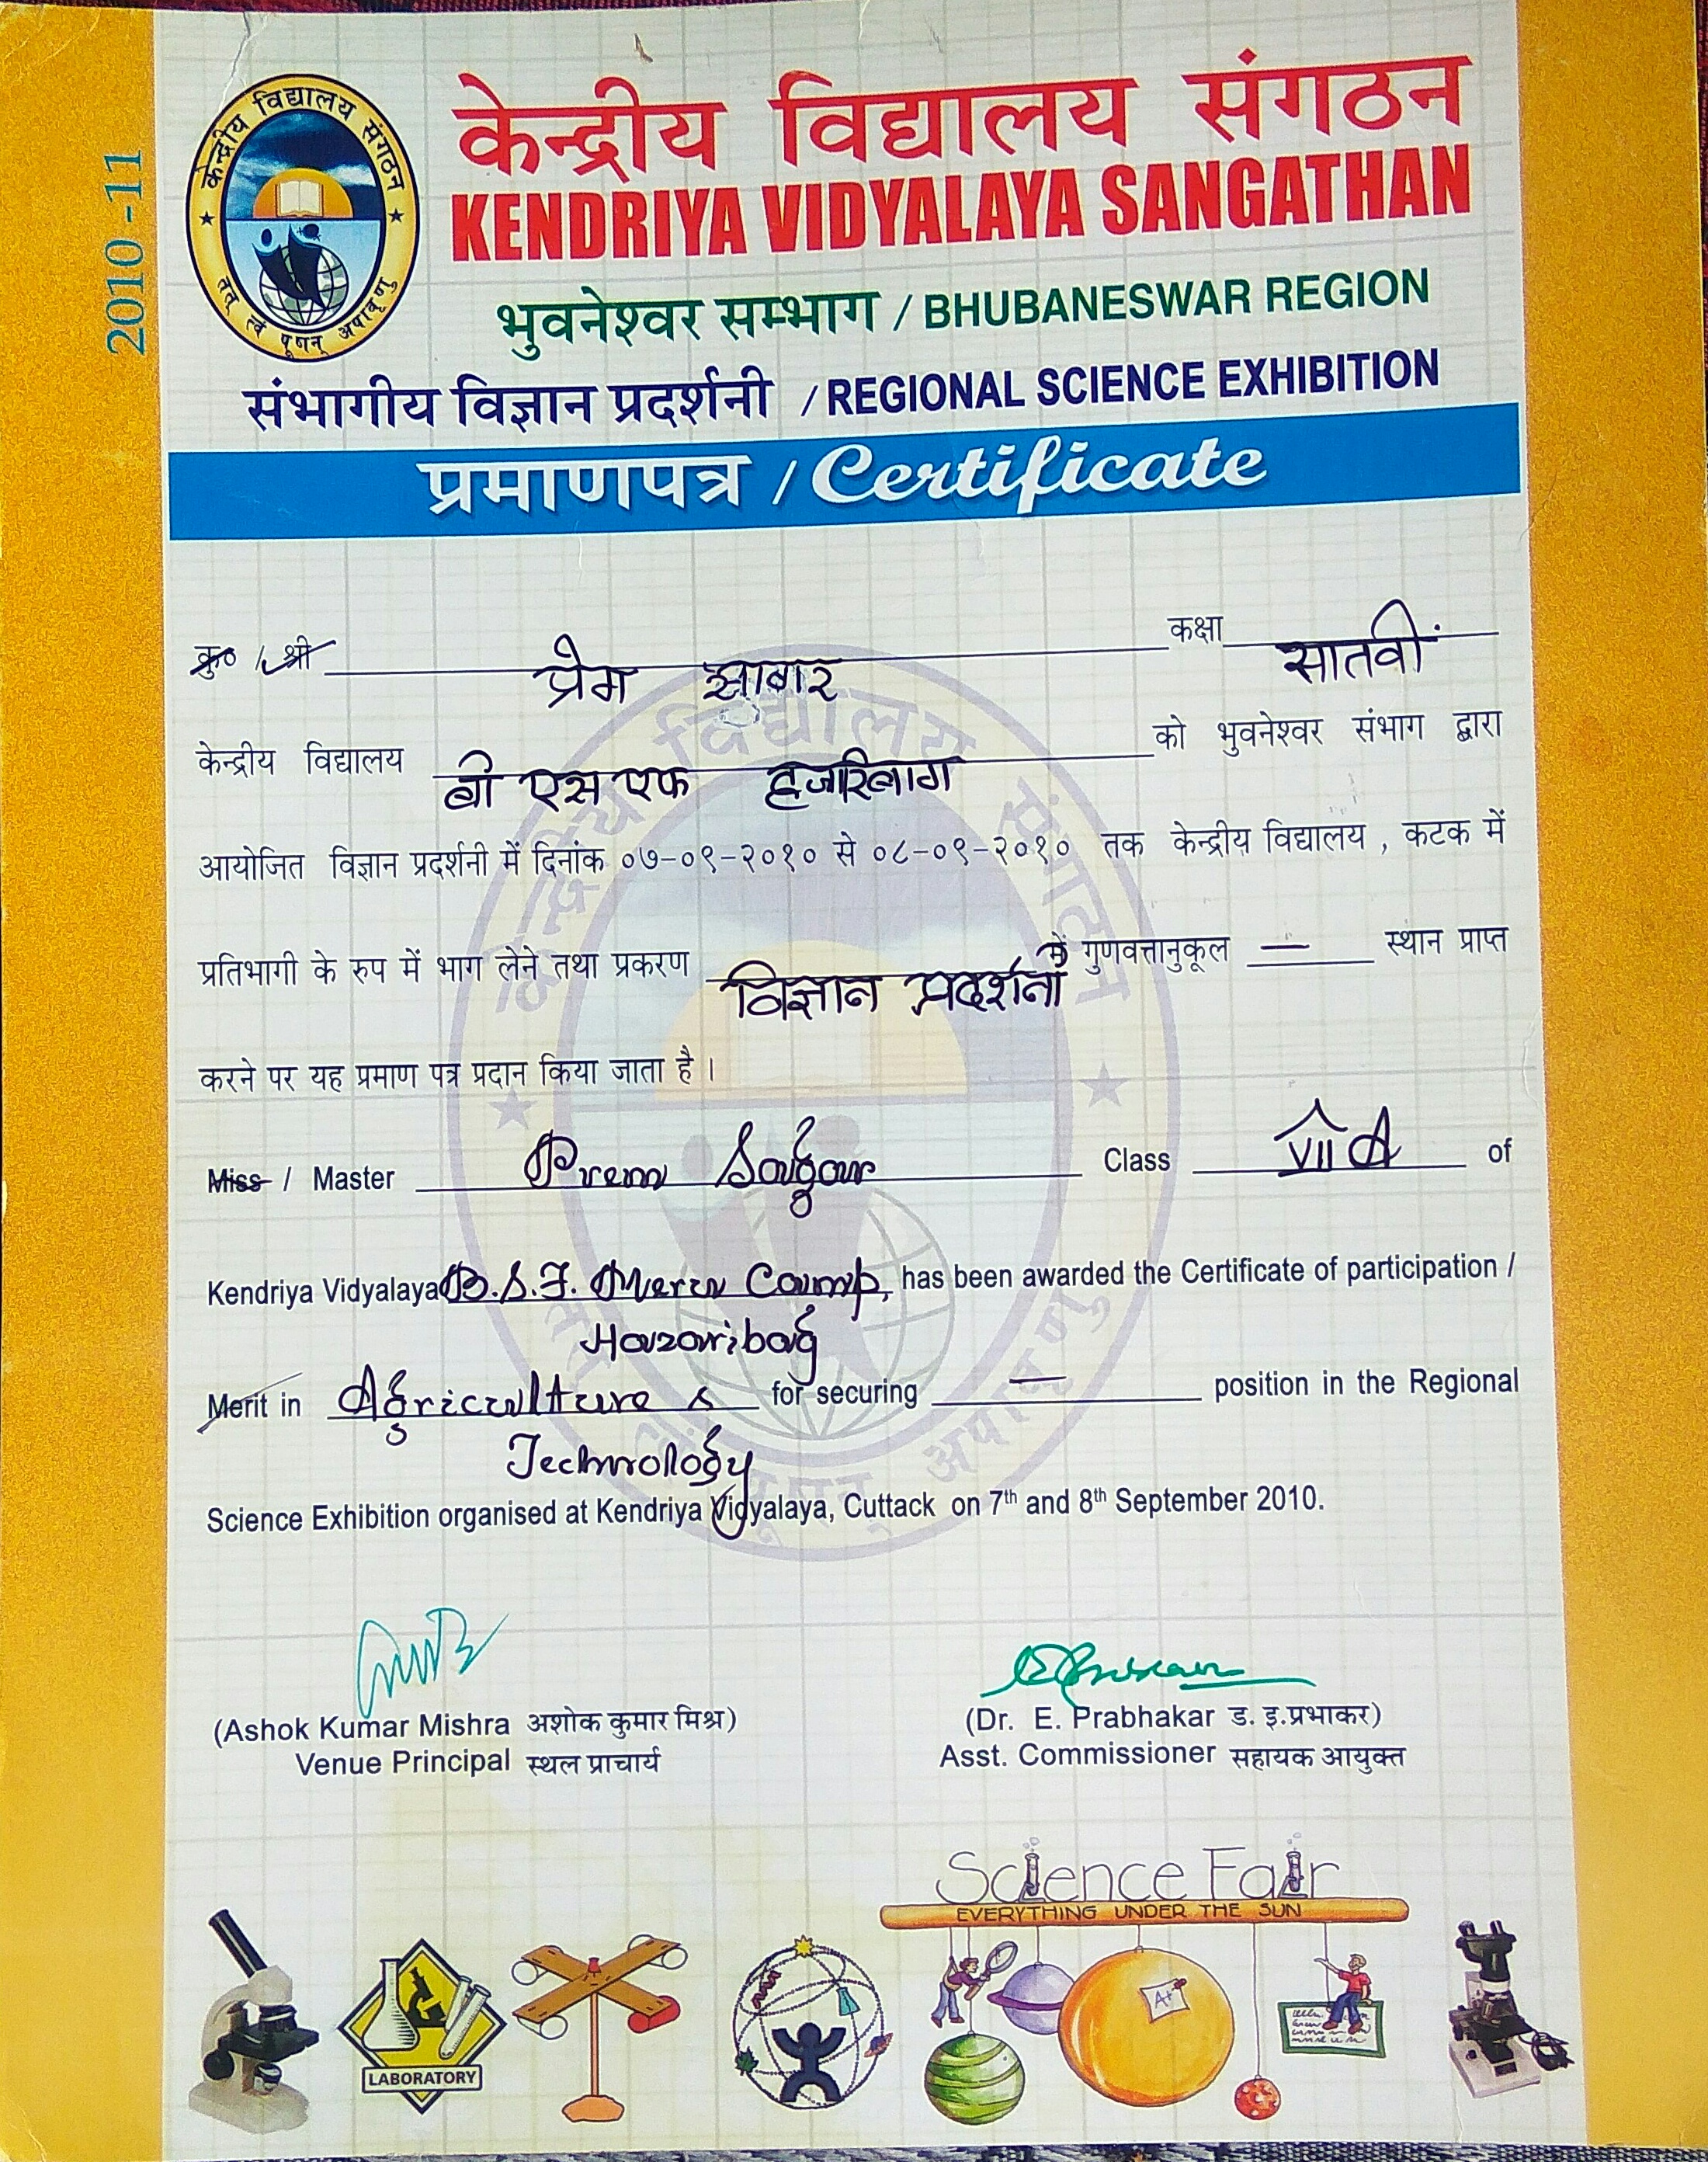 2010-11
केन्द्रीय विद्यालय संगठन
तत् त्वं पूषन् अपावृणु
केन्द्रीय विद्यालय संगठन
KENDRIYA VIDYALAYA SANGATHAN
भुवनेश्वर सम्भाग / BHUBANESWAR REGION
संभागीय विज्ञान प्रदर्शनी / REGIONAL SCIENCE EXHIBITION
प्रमाणपत्र / Certificate
कु० / श्री प्रेम सागर कक्षा सातवीं
केन्द्रीय विद्यालय बी एस एफ हजारिबाग को भुवनेश्वर संभाग द्वारा
आयोजित विज्ञान प्रदर्शनी में दिनांक ०७-०९-२०१० से ०८-०९-२०१० तक केन्द्रीय विद्यालय , कटक में
प्रतिभागी के रुप में भाग लेने तथा प्रकरण विज्ञान प्रदर्शनी में गुणवत्तानुकूल — स्थान प्राप्त
करने पर यह प्रमाण पत्र प्रदान किया जाता है ।
Miss / Master Prem Sagar Class VII A of
Kendriya Vidyalaya B.S.F. Meru Camp, has been awarded the Certificate of participation /
Hazaribag
Merit in Agriculture & for securing — position in the Regional
Technology
Science Exhibition organised at Kendriya Vidyalaya, Cuttack on 7th and 8th September 2010.
(Ashok Kumar Mishra अशोक कुमार मिश्र)
Venue Principal स्थल प्राचार्य
(Dr. E. Prabhakar ड. इ.प्रभाकर)
Asst. Commissioner सहायक आयुक्त
Science Fair
EVERYTHING UNDER THE SUN
A+
LABORATORY